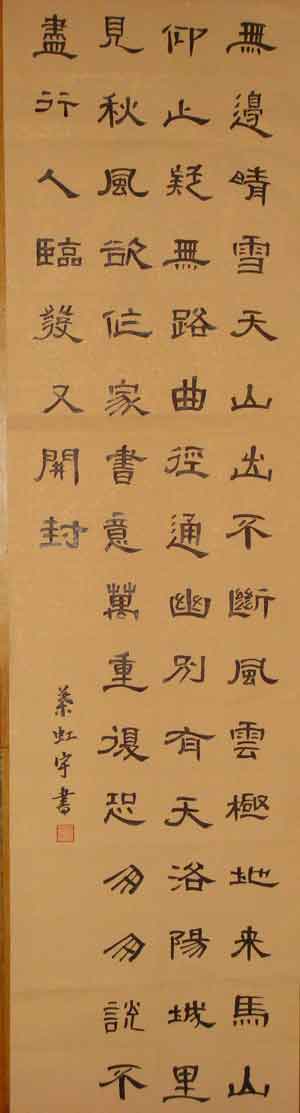 無邊晴雪天山出不斷風雲極地来馬山
仰止疑無路曲徑通幽別有天洛陽城里
見秋風欲作家書意萬重復恐匆匆說不
盡行人臨發又開封
虹宇書